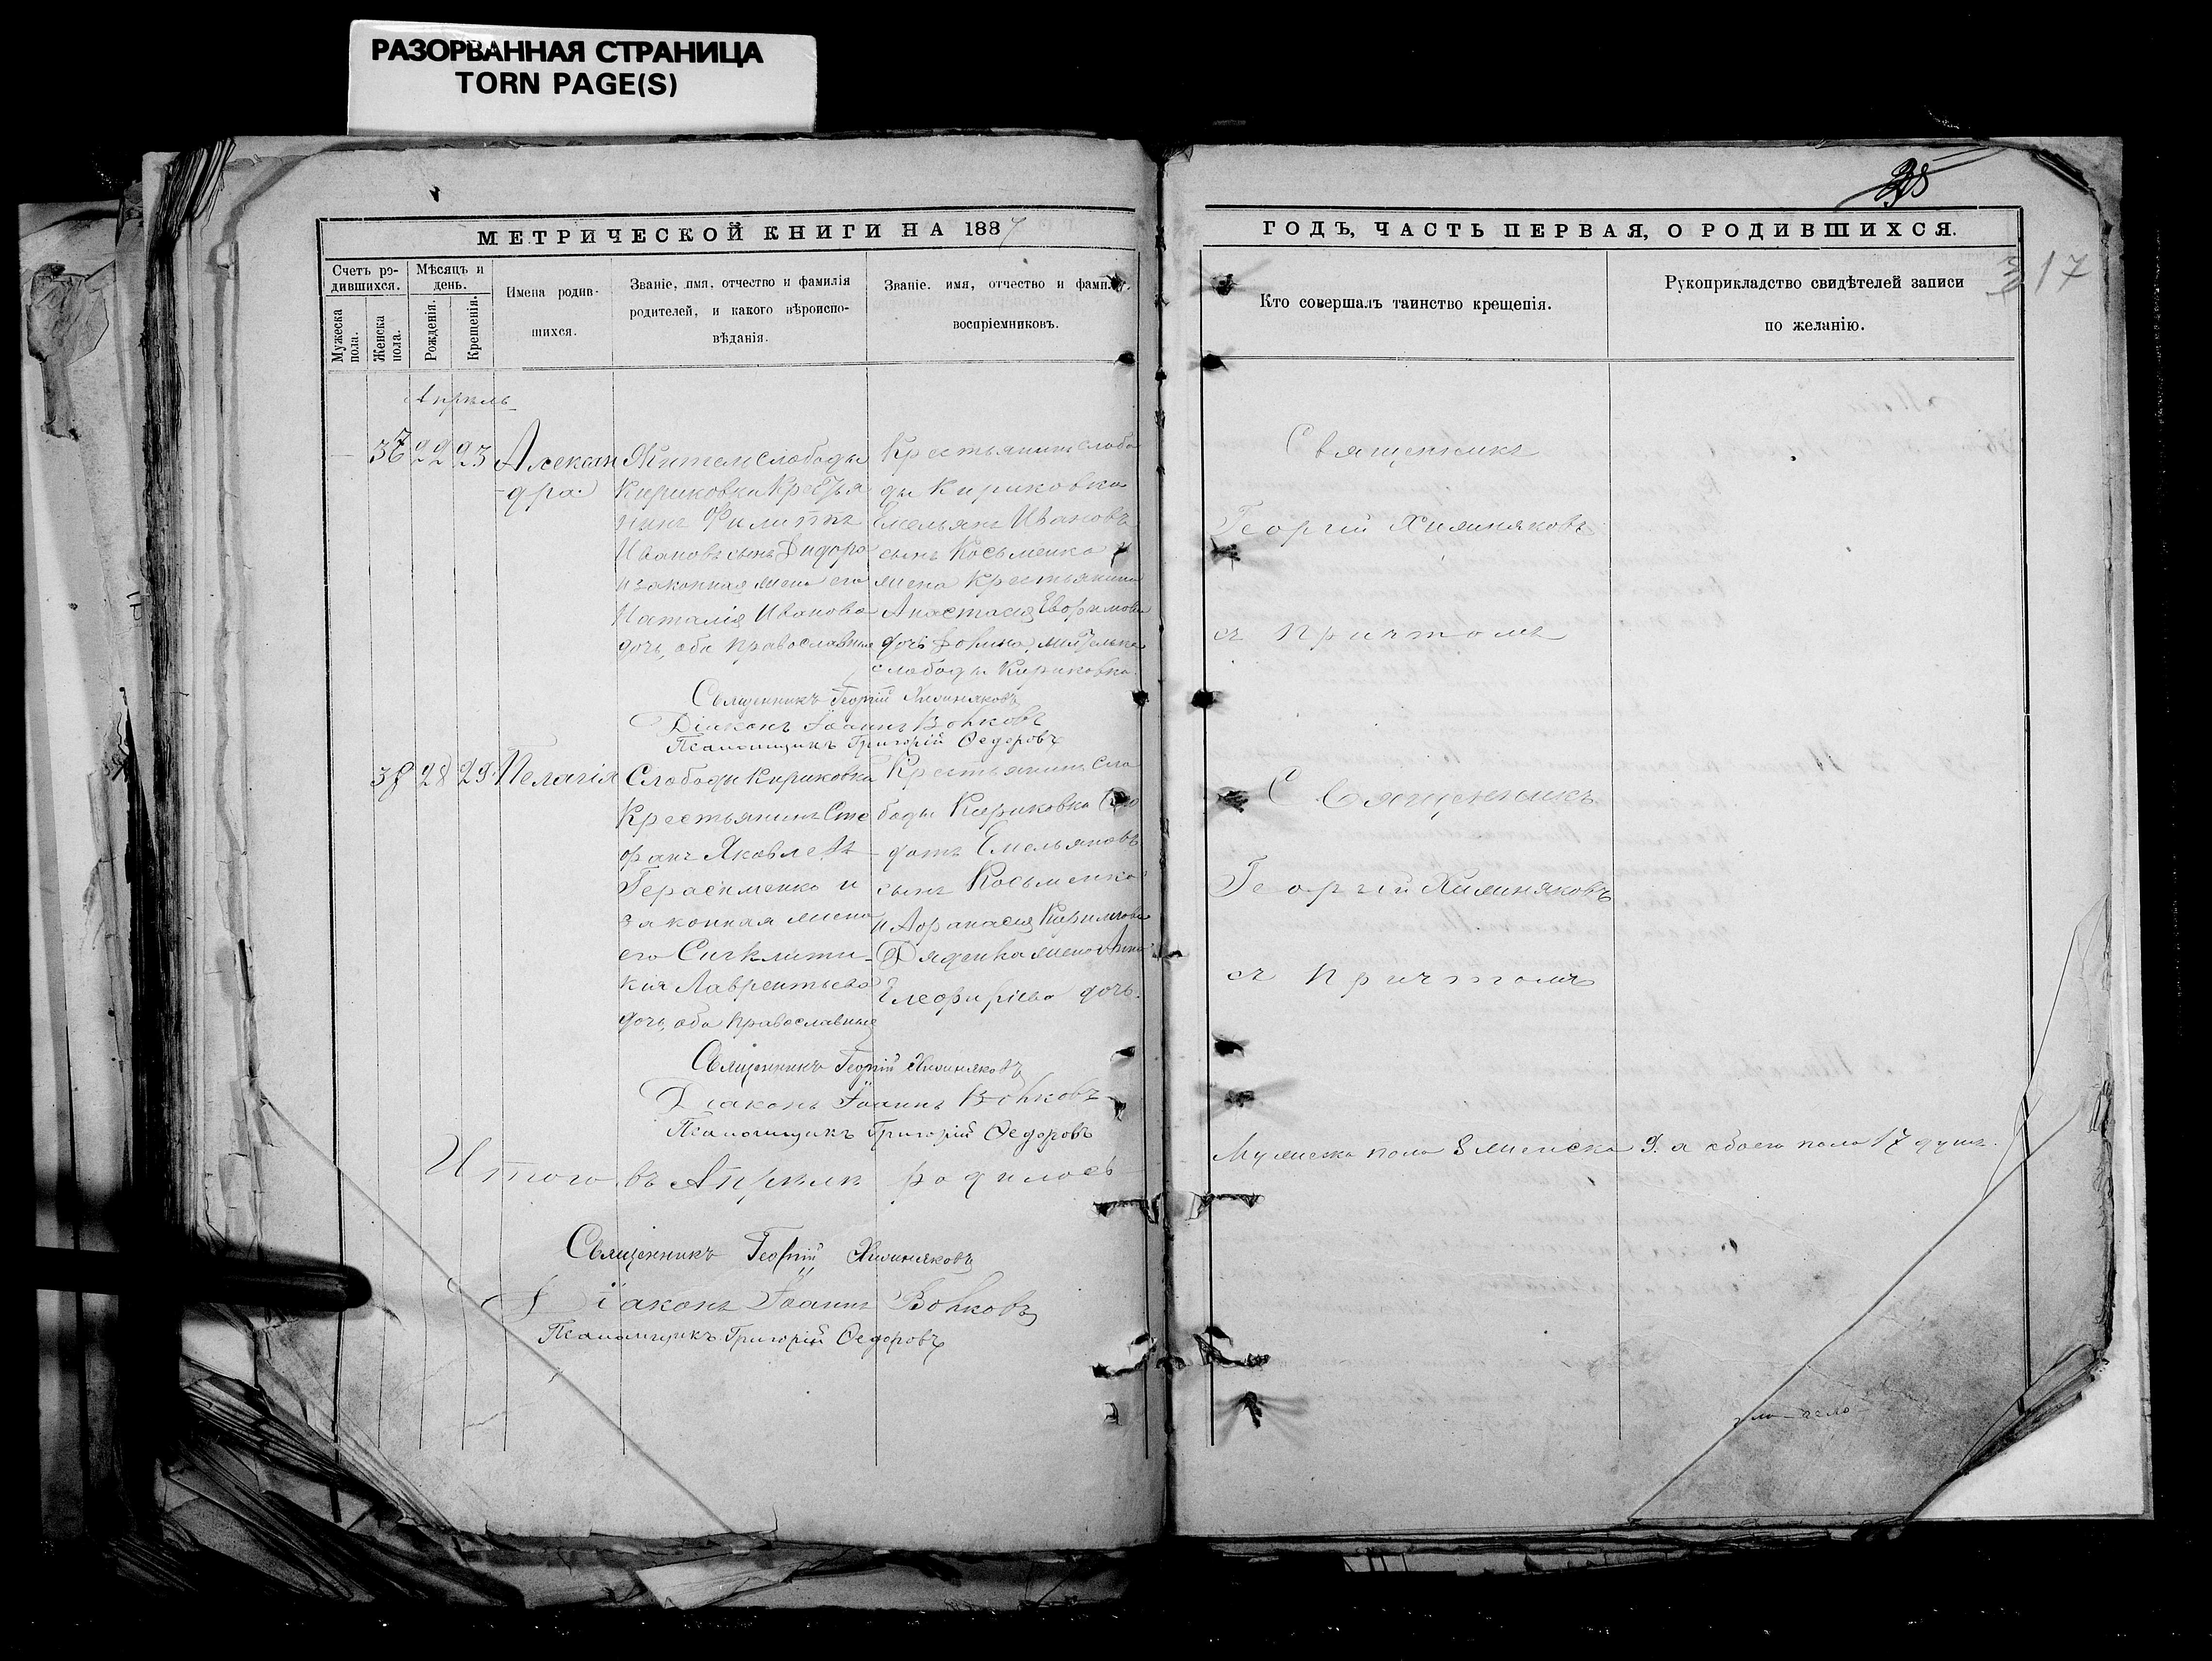 РАЗОРВАННАЯ СТРАНИЦА
TORN PAGE(S)
МЕТРИЧЕСКОЙ КНИГИ НА 1887
Счетъ ро-
дившихся.
Мѣсяцъ и
день.
Мужеска
пола.
Женска
пола.
Рожденія.
Крещенія.
Имена родив-
шихся.
Званіе, имя, отчество и фамилія
родителей, и какого вѣроиспо-
вѣданія.
Званіе, имя, отчество и фамилія
воспріемниковъ.
Апрѣль
37 22 23 Алексан
-дра
Житель слободы
Кириковки Крестья
нинъ Филиппъ
Ивановъ сынъ
и законная жена его
Наталія Иванова
дочь, оба православные
Крестьянинъ слобо
ды Кириковки
Емельянъ Ивановъ
сынъ Косьменко и
жена крестьянина
Анастасія Евфимова
дочь жительница
слободы Кириковки.
Священникъ Георгій Хижняковъ
Діаконъ Іоаннъ Волковъ
Псаломщикъ Григорій Ѳедоровъ
38 28 29 Пелагія
Слободы Кириковки
Крестьянинъ Сте
фанъ Яковлевъ
Герасименко и
законная жена
его Синклити-
кія Лаврентьева
дочь, оба православные
Крестьянинъ Сло
боды Кириковки
Емельяновъ
сынъ Косьменко
и
Дяденка жена
Елеоферіева дочь.
Священникъ Георгій Хижняковъ
Діаконъ Іоаннъ Волковъ
Псаломщикъ Григорій Ѳедоровъ
Итого въ Апрѣлѣ родилось
Священникъ Георгій Хижняковъ
Діаконъ Іоаннъ Волковъ
Псаломщикъ Григорій Ѳедоровъ
ГОДЪ, ЧАСТЬ ПЕРВАЯ, О РОДИВШИХСЯ.
17
Кто совершалъ таинство крещенія.
Рукоприкладство свидѣтелей записи
по желанію.
Священникъ
Георгій Хижняковъ
съ причтомъ
Священникъ
Георгій Хижняковъ
съ причтомъ
Мужеска пола 8 женска 9. а обоего пола 17 душъ.